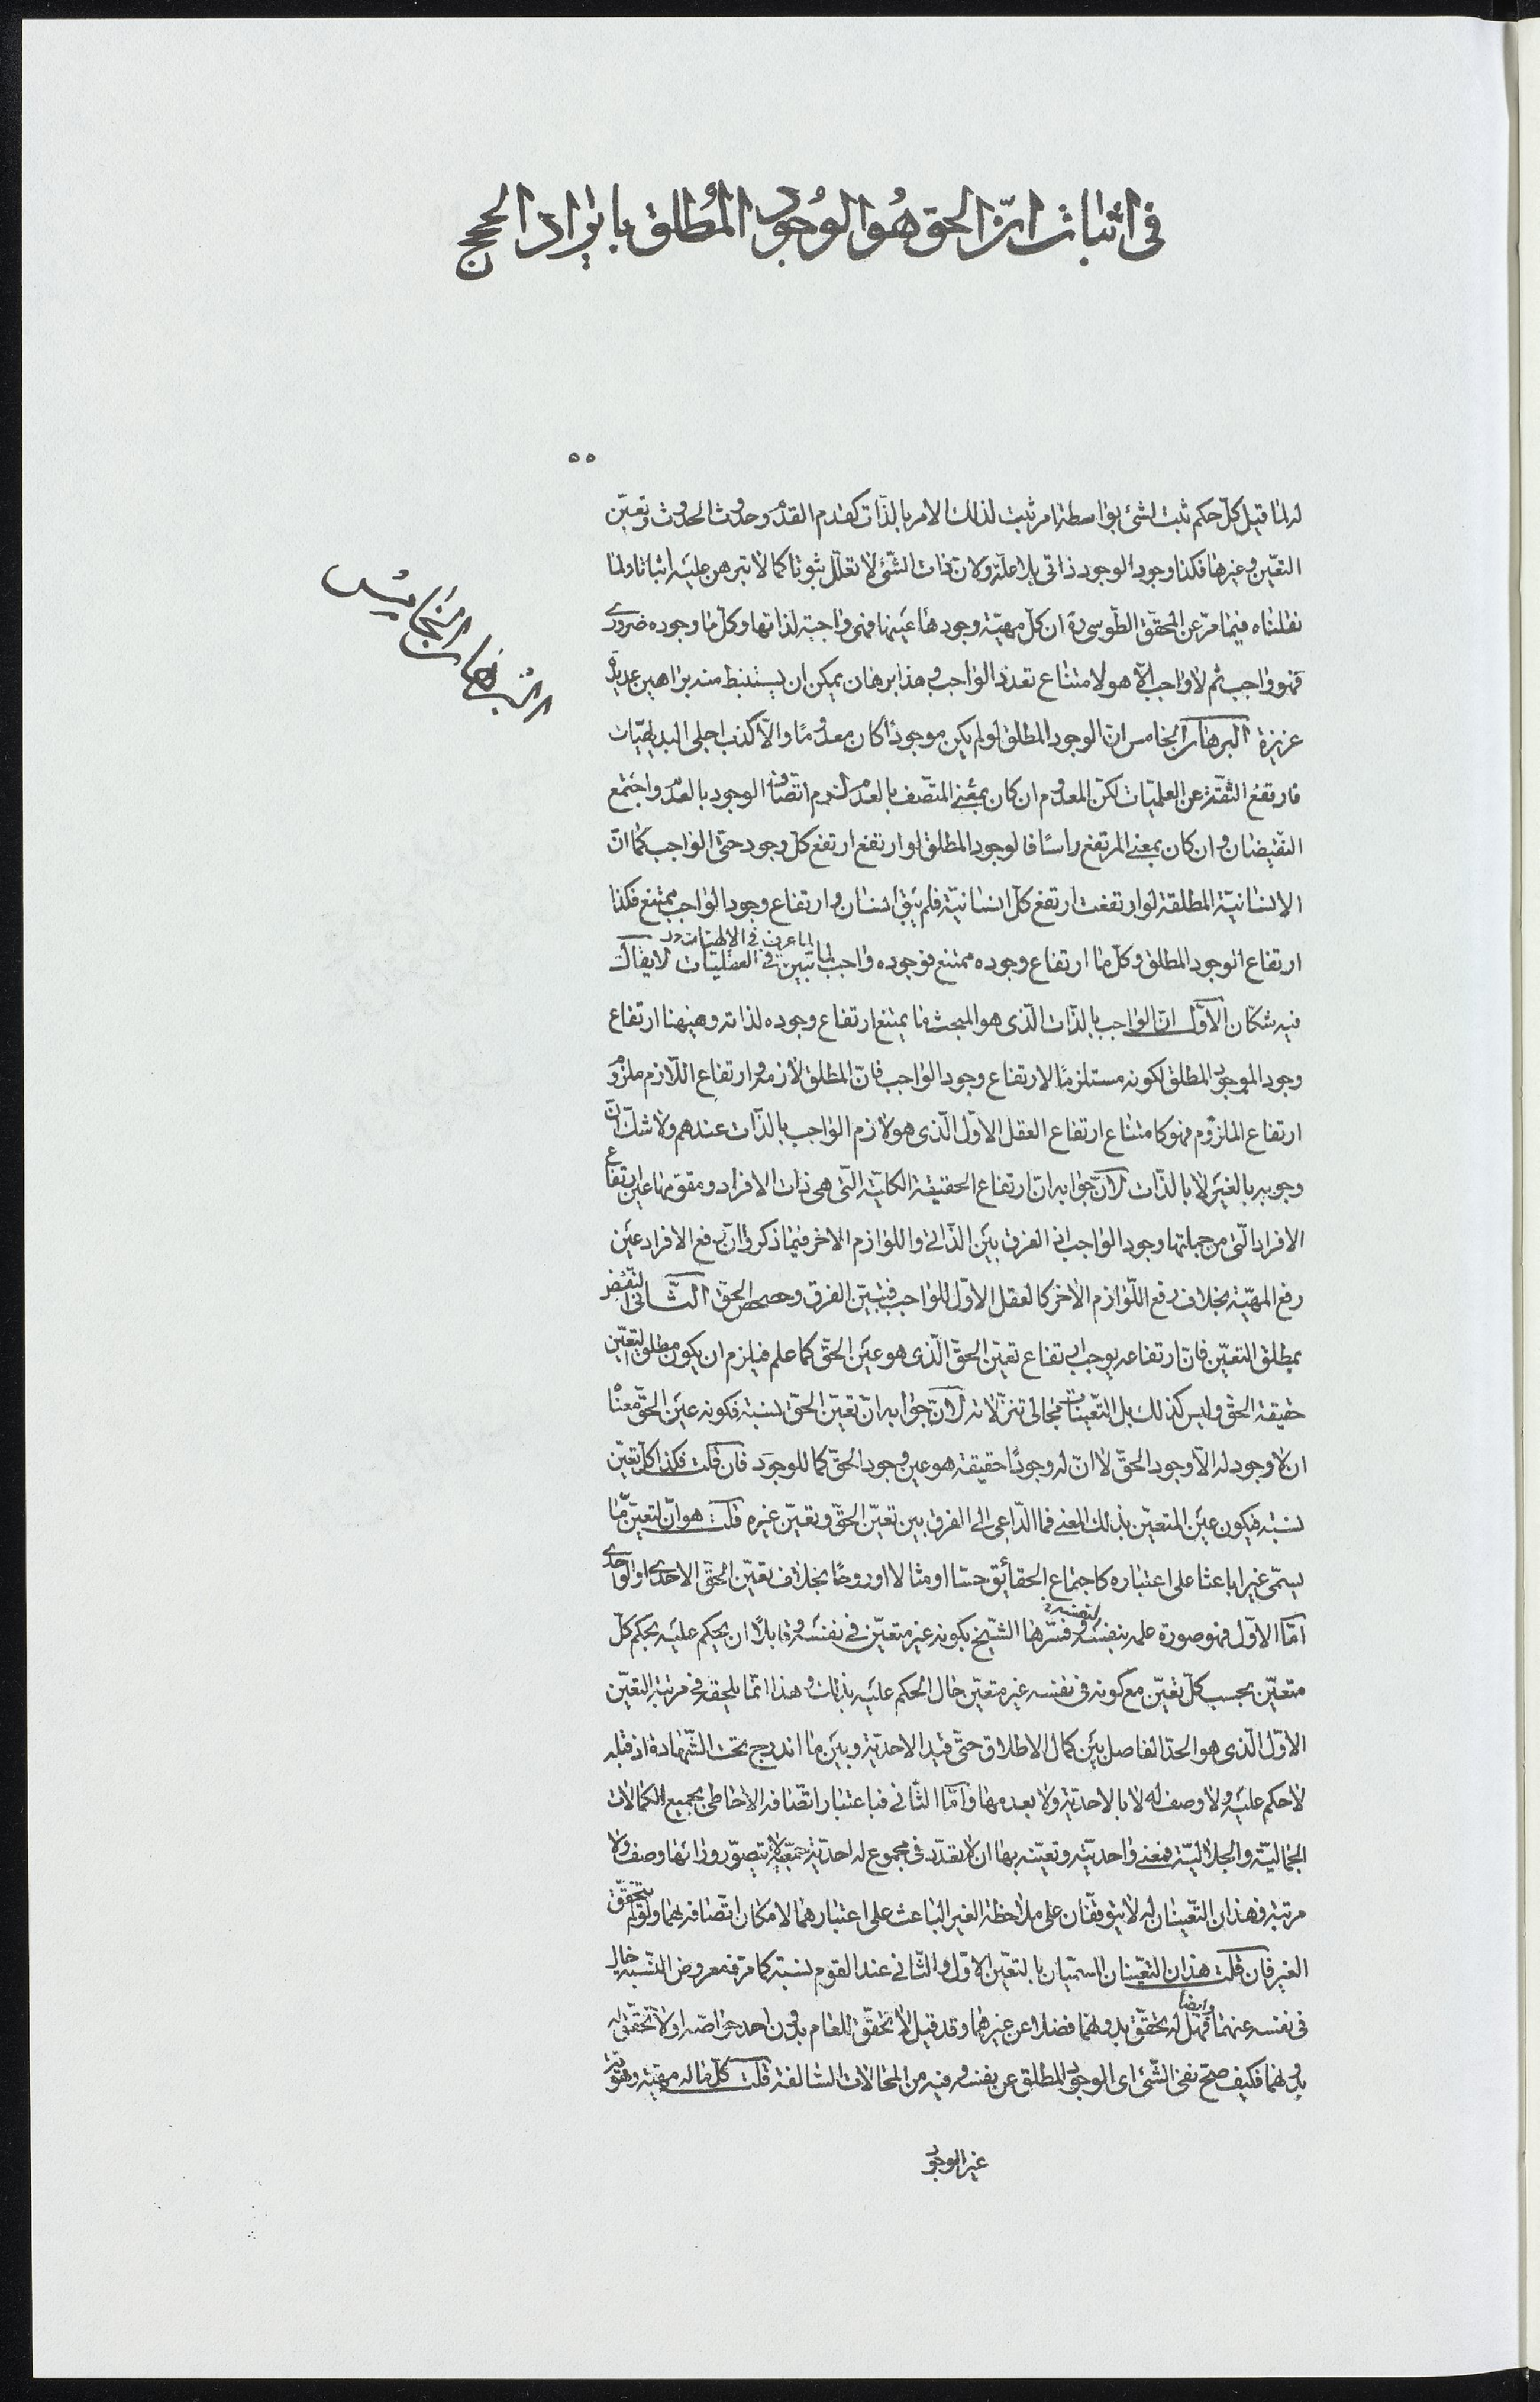 فى اثبات انّ الحق هُو الوُجود المُطلق بايراد الحجج
٥٥
له لما قيل كلّ حكم ثبت لشئ بواسطة امر ثبت لذلك الامر بالذّات كقدم القدم وحدوث الحدوث وتعيّن
التعيّن وغيرها فكذا وجود الوجود ذاتى بلا علّة ولان ذات الشّئ لا تعلّل ثبوتا كما لا تبرهن عليه اثباتا ولما
نقلناه فيما مرّ عن المحقّق الطّوسى ره ان كلّ مهيّة وجودها عينها فهى واجبة لذاتها وكلّ ما وجوده ضرورى
فهو واجب ثم لا واجب الّا هو لامتناع تعدّد الواجب وهذا برهان يمكن ان يستنبط منه براهين عديدة
عزيزة البرهان الخامس انّ الوجود المطلق لو لم يكن موجودًا كان معدومًا والّا كذب اجلى البديهيّات
فارتفع الثّقة عن العلميّات لكن المعدوم ان كان بمعنى المتّصف بالعدم لزم اتّصاف الوجود بالعدم واجتمع
النّقيضان وان كان بمعنى المرتفع راسًا فالوجود المطلق لو ارتفع ارتفع كلّ وجود حتّى الواجب كما انّ
الانسانيّة المطلقة لو ارتفعت ارتفع كلّ انسانيّة فلم يبق انسان وارتفاع وجود الواجب ممتنع فكذا
ارتفاع الوجود المطلق وكلّ ما ارتفاع وجوده ممتنع فوجوده واجب لما تبين فى العقليّات لا يقال
لما عرف فى الإلهيّات
فيه شكّان الأوّل انّ الواجب بالذّات الّذى هو المبحث ما يمتنع ارتفاع وجوده لذاته وهيهنا ارتفاع
وجود الموجود المطلق لكونه مستلزمًا لارتفاع وجود الواجب فانّ المطلق لازمه وارتفاع اللّازم ملزوم
ارتفاع الملزوم فهو كامتناع ارتفاع العقل الاوّل الّذى هو لازم الواجب بالذّات عندهم ولا شكّ انّ
وجوبه بالغير لا بالذّات لانّ جوابه انّ ارتفاع الحقيقة الكليّة الّتى هى ذات الافراد ومقوّمها عين ارتفاع
الافراد الّتى من جملتها وجود الواجب اذ الفرق بين الذّاتى واللوازم الاخر فيما ذكر وا انّ رفع الافراد عين
رفع المهيّة بخلاف رفع اللّوازم الاخر كالعقل الاوّل للواجب فتبيّن الفرق وحصحص الحقّ الثّانى النقض
بمطلق التعيّن فان ارتفاعه يوجب ارتفاع تعيّن الحقّ الّذى هو عين الحقّ كما علم فيلزم ان يكون مطلق التعيّن
حقيقة الحقّ وليس كذلك بل التّعيّنات مجالى تنزّلاته لانّ جوابه انّ تعيّن الحقّ نسبته فكونه عين الحقّ معناه
ان لا وجود له الّا وجود الحقّ لا انّ له وجودًا حقيقة هو عين وجود الحقّ كما للوجود فان قلت فكذا كلّ تعيّن
نسبة فيكون عين المتعيّن بذلك المعنى فما الدّاعى الى الفرق بين تعيّن الحقّ وتعيّن غيره قلت هو انّ لتعيّن ما
يسمّى غيرا باعثا على اعتباره كاجتماع الحقائق حسّا او مثالا او روحًا بخلاف تعيّن الحقّ الاحدى او الواحدى
امّا الاوّل فهو صورة علمه بنفسه وفسّرها الشّيخ بكونه غير متعيّن فى نفسه وقابلًا ان يحكم عليه بحكم كلّ
لنفسه
متعيّن بحسب كلّ تعيّن مع كونه فى نفسه غير متعيّن حال الحكم عليه بذلك وهذا انّما يلحقه فى مرتبة التعيّن
الاوّل الّذى هو الحدّ الفاصل بين كمال الاطلاق حتّى قيد الاحديّة وبين ما اندرج تحت الشّهادة اذ قبله
لا حكم عليه ولا وصف له لا بالاحديّة ولا بعدمها وامّا الثّانى فباعتبار اتّصافه الاحاطى بجميع الكمالات
الجماليّة والجلاليّة فمعنى واحديّته وتعيّنه بها ان لا تعدّد فى مجموع له احديّة جمعيّة لا يتصوّر ورائها وصف ولا
مرتبة فهذان التّعيّنان له لا يتوقّفان على ملاحظة الغير الباعث على اعتبارهما لامكان اتّصافه بهما ولو لم يتحقّق
الغير فان قلت هذان التّعيّنان المسمّيان بالتعيّن الاوّل والثّانى عند القوم نسبة كما مرّ فمعروض النّسبة خال
فى نفسه عنهما فهل له تحقّق بدونهما فضلا عن غيرهما وقد قيل لا تحقّق للعام بدون احد خواصّه او لا تحقّق له
وايضا
بدونهما فكيف صحّ نفى الشّئ اى الوجود المطلق عن نفسه وفيه من المحالات السّالفة قلت كلّ ما له مهيّة وهويّة
غير الوجود
البُرهان الخامس